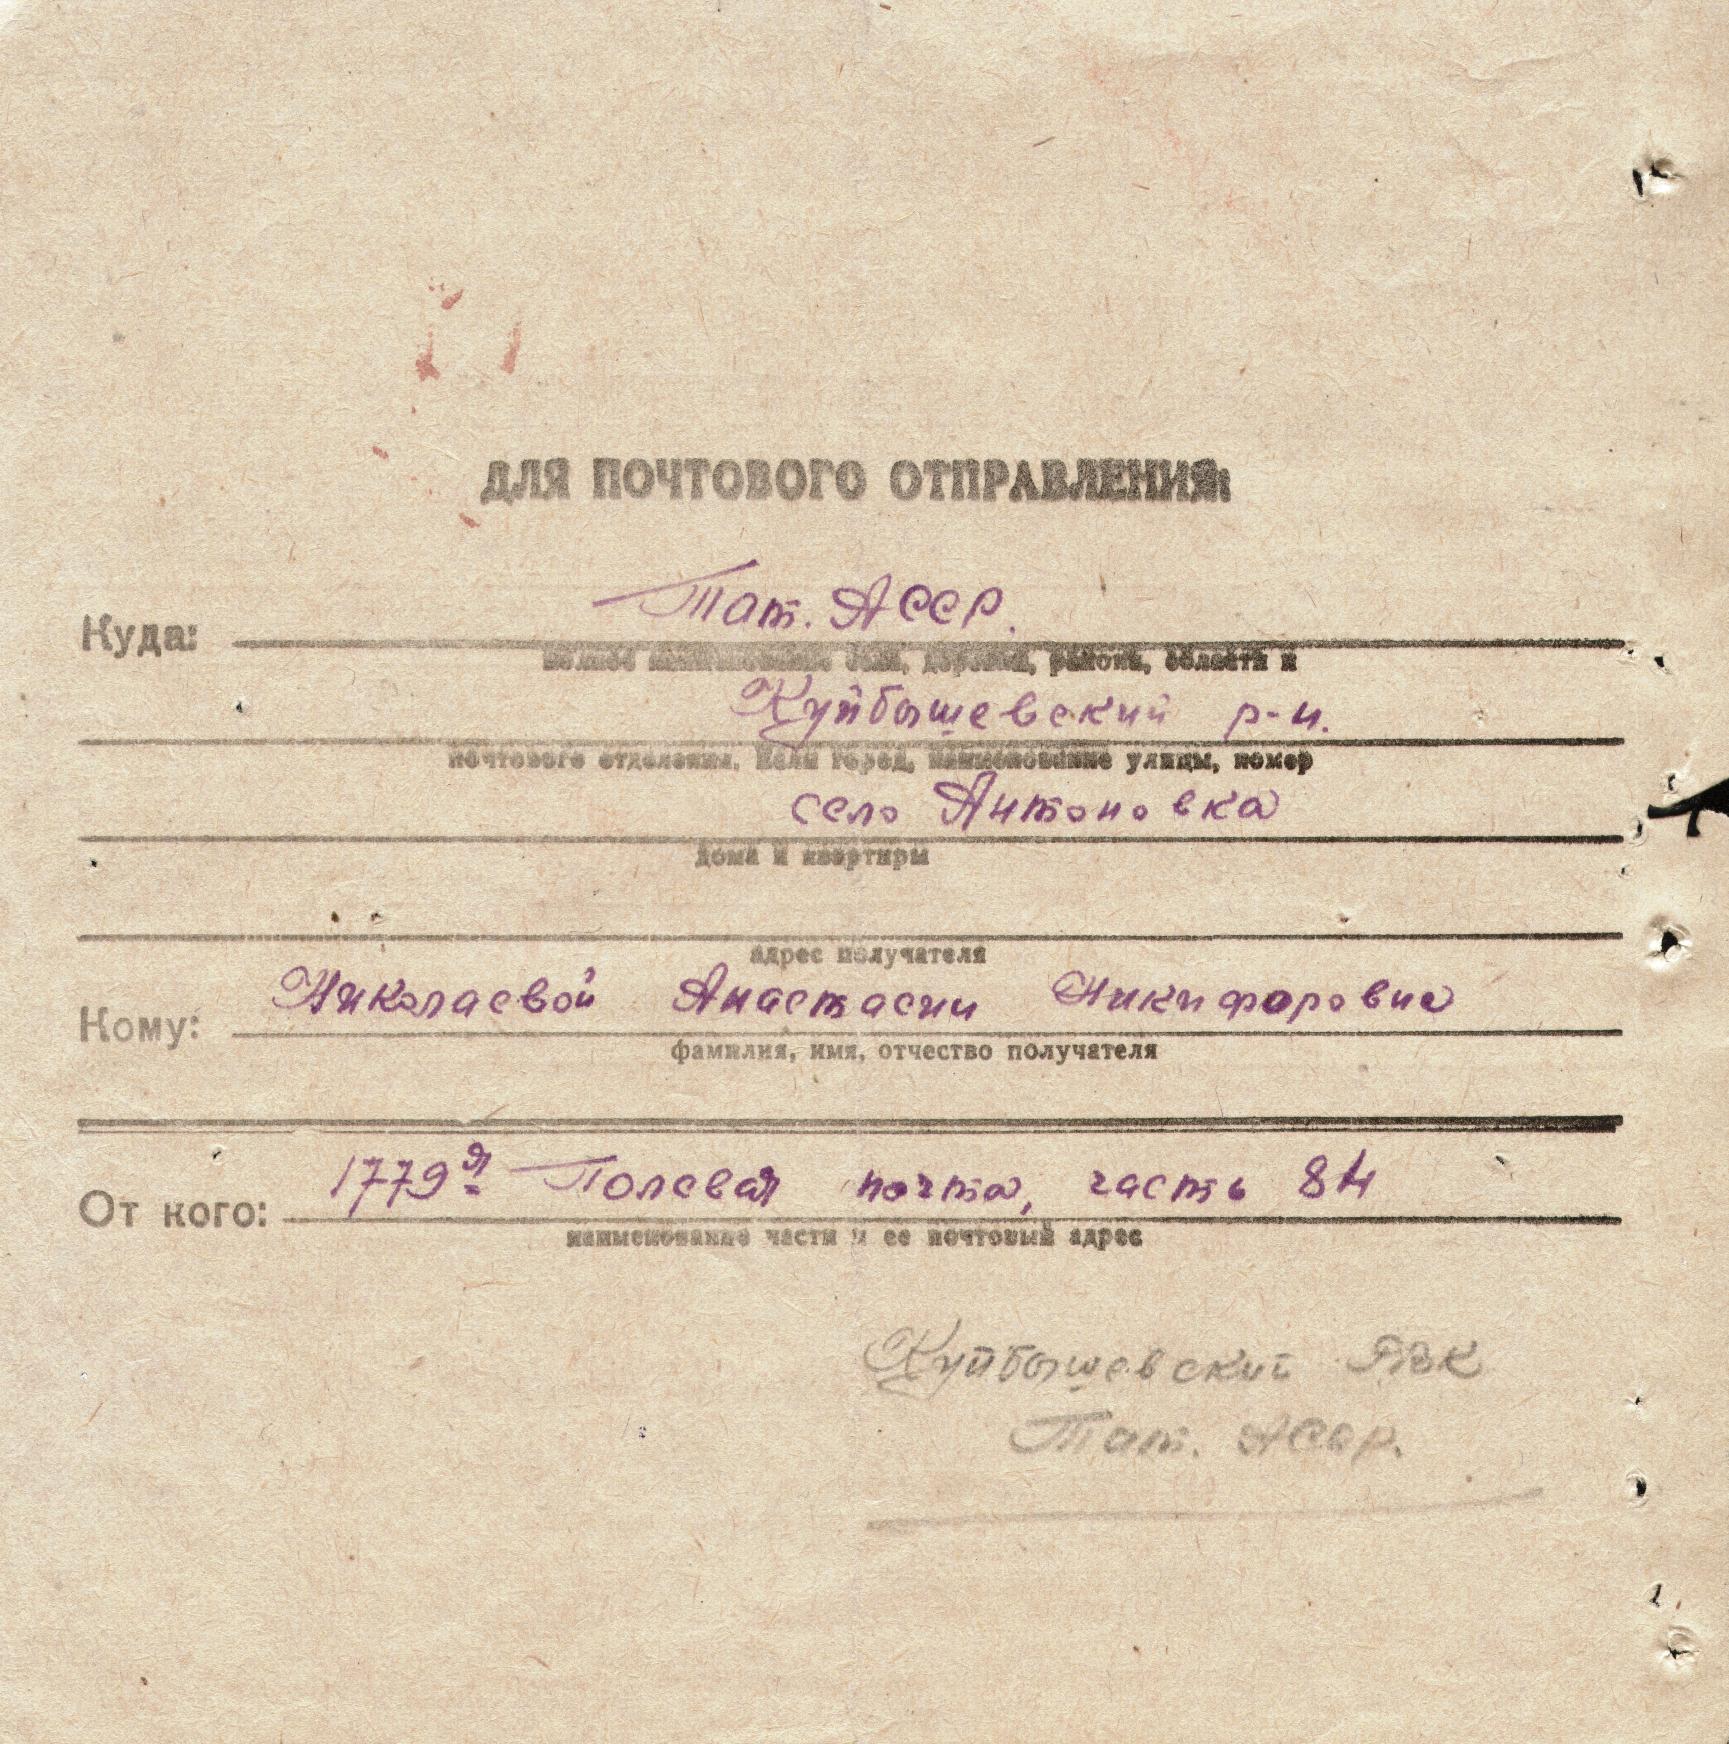 ДЛЯ ПОЧТОВОГО ОТПРАВЛЕНИЯ:
Тат. АССР.
Куда:
полное наименование села, деревни, района, области и
Куйбышевский р-н.
почтового отделения. Если город, наименование улицы, номер
село Антоновка
дома и квартиры
адрес получателя
Кому: Николаевой Анастасии Никифоровне
фамилия, имя, отчество получателя
От кого: 1779я Полевая почта, часть 84
наименование части и ее почтовый адрес
Куйбышевский РВК
Тат. АССР.